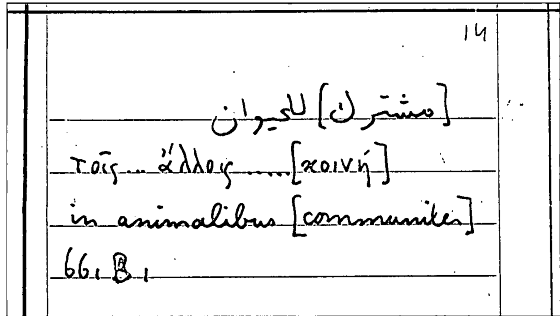 14
[مشترك] للحيوان
τοῖς... ἄλλοις ..... [κοινή]
in animalibus [communiter]
66, B,